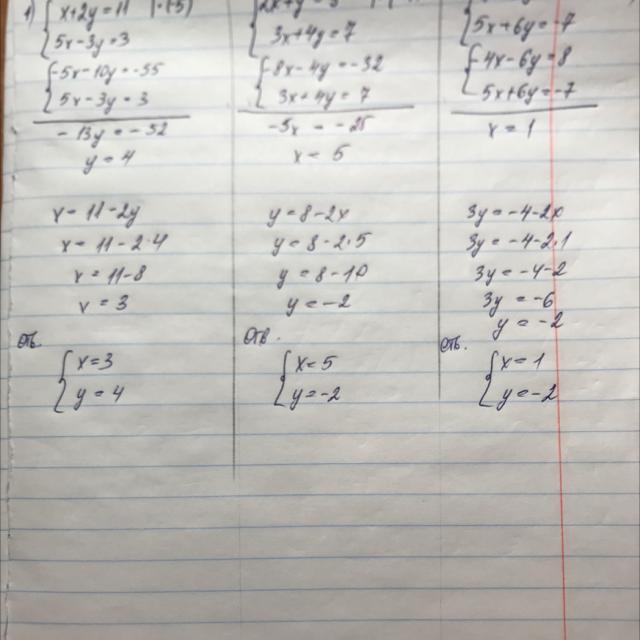 1) { x+2y=11 | ·(-5)
{ 5x-3y=3
{ -5x-10y=-55
{ 5x-3y=3
-13y=-52
y=4
x=11-2y
x=11-2·4
x=11-8
x=3
Отв.
{ x=3
{ y=4
3x+4y=7
{ -8x-4y=-32
{ 3x+4y=7
-5x=-25
x=5
y=8-2x
y=8-2·5
y=8-10
y=-2
Отв.
{ x=5
{ y=-2
{ 5x+6y=-7
{ -4x-6y=8
{ 5x+6y=-7
x=1
3y=-4-2x
3y=-4-2·1
3y=-4-2
3y=-6
y=-2
Отв.
{ x=1
{ y=-2